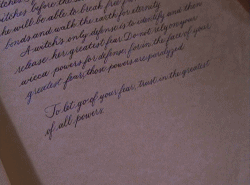 he will be able to break free
bonds and walk the earth for eternity
A witch's only defense is to identify and then
release her greatest fear. Do not rely on your
wiccan powers for defense, for in the face of your
greatest fear, those powers are paralyzed
To let go of your fear, trust in the greatest
of all powers